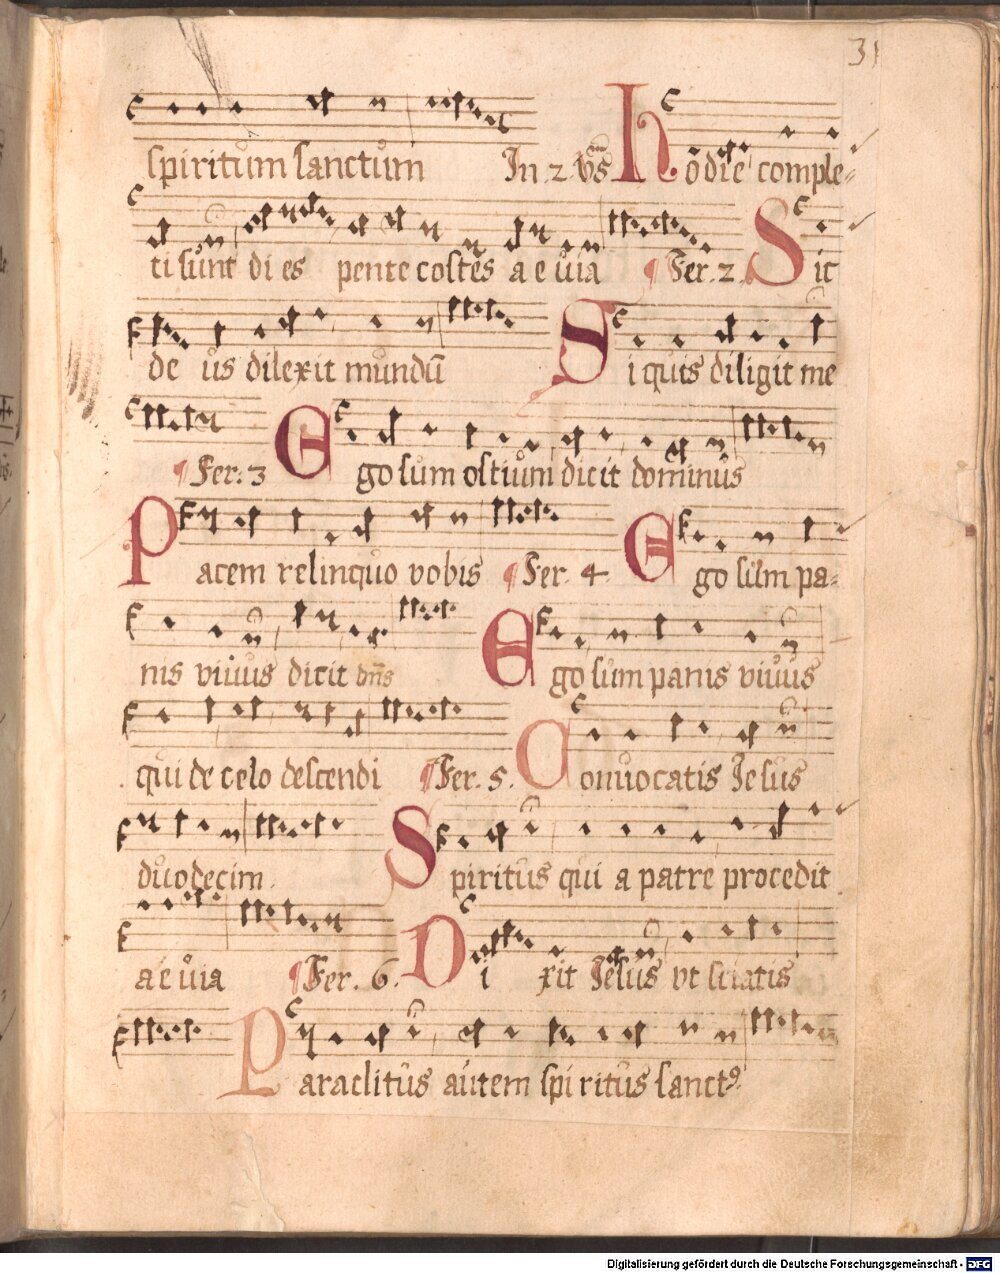 31
spiritum sanctum In 2 vs̄ Hodie comple-
ti sunt dies pentecostes aeuia Fer. 2. Sic
deus dilexit mundū Si quis diligit me
Fer: 3 Ego sum ostium dicit dominus
Pacem relinquo vobis Fer. 4 Ego sum pa-
nis viuus dicit dn̄s Ego sum panis viuus
qui de celo descendi Fer. 5. Conuocatis Jesus
duodecim. Spiritus qui a patre procedit
aeuia Fer. 6. Dixit Jesus vt sciatis
Paraclitus autem spiritus sanctꝰ
Digitalisierung gefördert durch die Deutsche Forschungsgemeinschaft - DFG